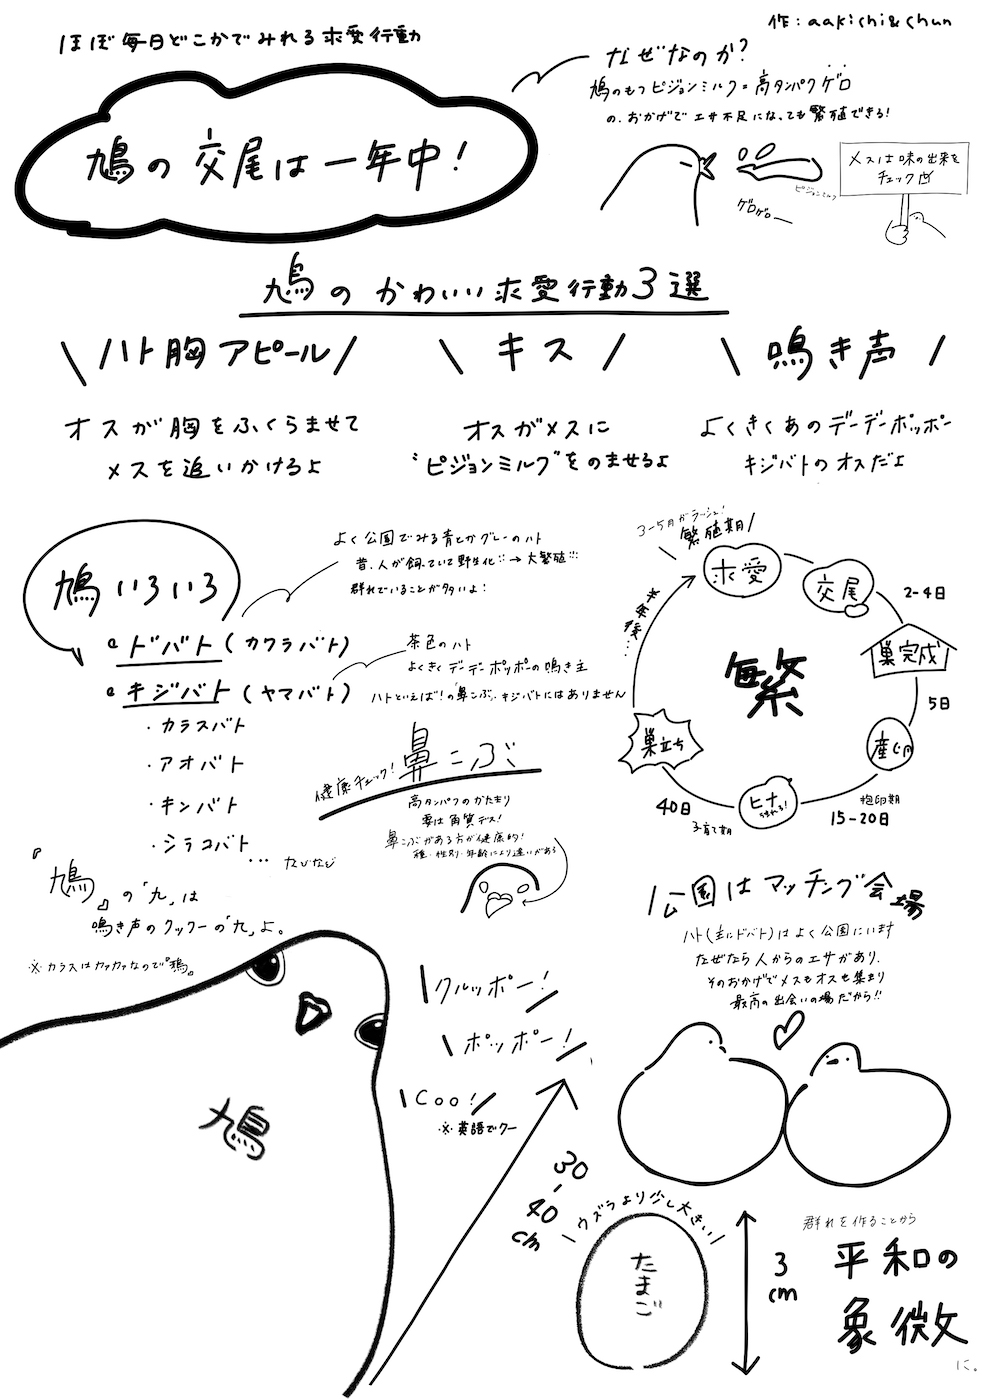 作:aakichi&chun
ほぼ毎日どこかでみれる求愛行動
鳩の交尾は一年中!
なぜなのか?
鳩のもつピジョンミルク=高タンパクゲロ
の、おかげでエサ不足になっても繁殖できる!
メスは味の出来を
チェック
ピジョンミルク
ゲロゲロー
鳩のかわいい求愛行動3選
\ハト胸アピール/
オスが胸をふくらませて
メスを追いかけるよ
\キス/
オスがメスに
"ピジョンミルク"をのませるよ
\鳴き声/
よくきくあのデーデーポッポー
キジバトのオスだよ
鳩いろいろ
よく公園でみる青とかグレーのハト
昔、人が飼っていて野生化→大繁殖!!!
群れでいることが多いよ!
ドバト(カワラバト)
茶色のハト
よくきくデーデーポッポーの鳴き主
ハトといえば!の「鼻こぶ」、キジバトにはありません
キジバト(ヤマバト)
・カラスバト
・アオバト
・キンバト
・シラコバト
・・・などなど
健康チェック!鼻こぶ
高タンパクのかたまり
要は角質デス!
鼻こぶがある方が健康的!
種・性別・年齢により違いがある
3-5月がラッシュ!
繁殖期/
求愛
交尾
2-4日
巣完成
5日
産卵
抱卵期
15-20日
ヒナ
うまれる!
40日
子育て期
巣立ち
半年後…
繁
『鳩』の「九」は
鳴き声のクックーの「九」よ。
※カラスはカァカァなので『鴉』
鳩
\クルッポー!/
\ポッポー!/
\Coo!/
※英語でクー
30-40cm
\公園はマッチング会場
ハト(主にドバト)はよく公園にいます
なぜなら人からのエサがあり、
そのおかげでメスもオスも集まり
最高の出会いの場だから!!
\ウズラより少し大きい/
たまご
3cm
群れを作ることから
平和の
象徴
に。